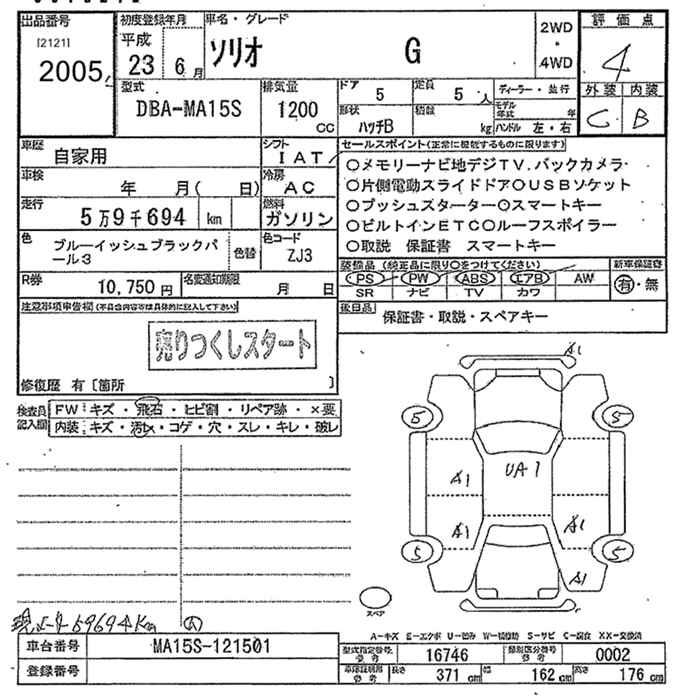 出品番号
[2121]
2005
初度登録年月
平成
23 6 月
車名・グレード
ソリオ G
2WD
・
4WD
評価点
4
外装 内装
C B
型式
DBA-MA15S
排気量
1200
cc
ドア
5
定員
5 人
形状
ハッチB
積数
kg
ディーラー・並行
モデル年式 年
ハンドル 左・右
車歴
自家用
シフト
IAT
車検
年 月( 日)
冷房
AC
走行
5万9千694 km
燃料
ガソリン
色
ブルーイッシュブラックパール3
色替
色コード
ZJ3
R券
10,750円
名変通知期限
月 日
セールスポイント(正常に機能するものに限ります)
○メモリーナビ地デジTV.バックカメラ
○片側電動スライドドア○USBソケット
○プッシュスターター○スマートキー
○ビルトインETC○ルーフスポイラー
○取説 保証書 スマートキー
装備品(純正品に限り○をつけてください)
PS PW ABS エアB AW
SR ナビ TV カワ
新車保証書
有・無
後日品
保証書・取説・スペアキー
注意事項申告欄(不具合内容等は具体的に記入して下さい)
売りつくしスタート
修復歴 有〔箇所 〕
検査員
記入欄
FW キズ・飛石・ヒビ割・リペア跡・×要
内装 キズ・汚れ・コゲ・穴・スレ・キレ・破レ
A1
5 5
A1 UA1
A1 A1
5 5
A1
スペア
現メーター59694Km
A-キズ E-エクボ U-凹み W-補修跡 S-サビ C-腐食 XX-交換済
車台番号
MA15S-121501
登録番号
型式指定番号
参考
16746
類別区分番号
参考
0002
車検証明形
参考
長さ
371 cm
幅
162 cm
高さ
176 cm